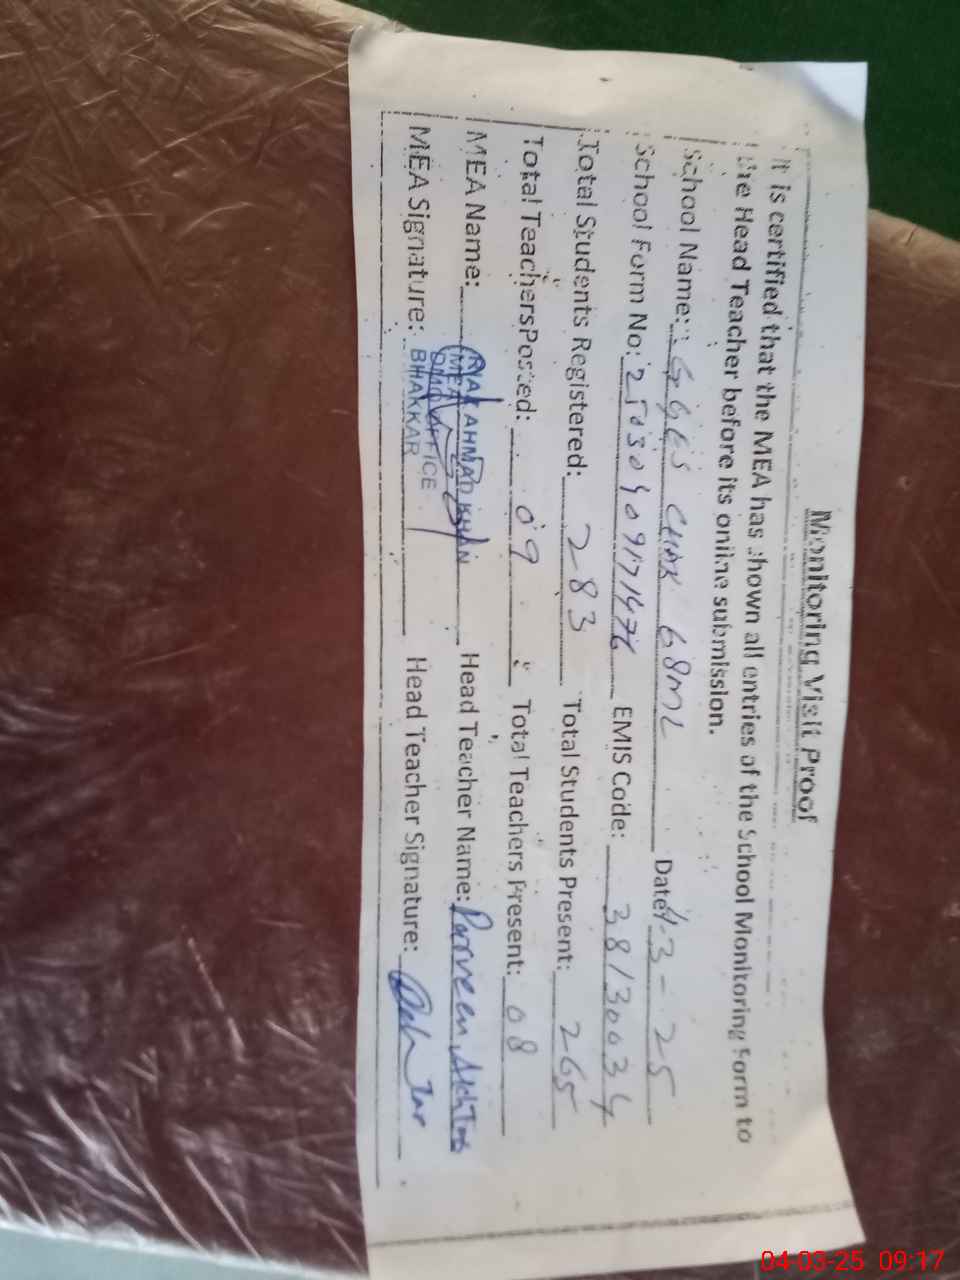 Monitoring Visit Proof
It is certified that the MEA has shown all entries of the School Monitoring Form to
the Head Teacher before its online submission.
School Name: GGES CHAK 68ML Date: 4-3-25
School Form No: EMIS Code: 38130034
Total Students Registered: 283 Total Students Present: 265
Total Teachers Posted: 09 Total Teachers Present: 08
MEA Name: RIAZ AHMAD KHAN Head Teacher Name: Parveen Akhtar
MEA
DMO OFFICE
MEA Signature: BHAKKAR Head Teacher Signature:
04-03-25 09:17